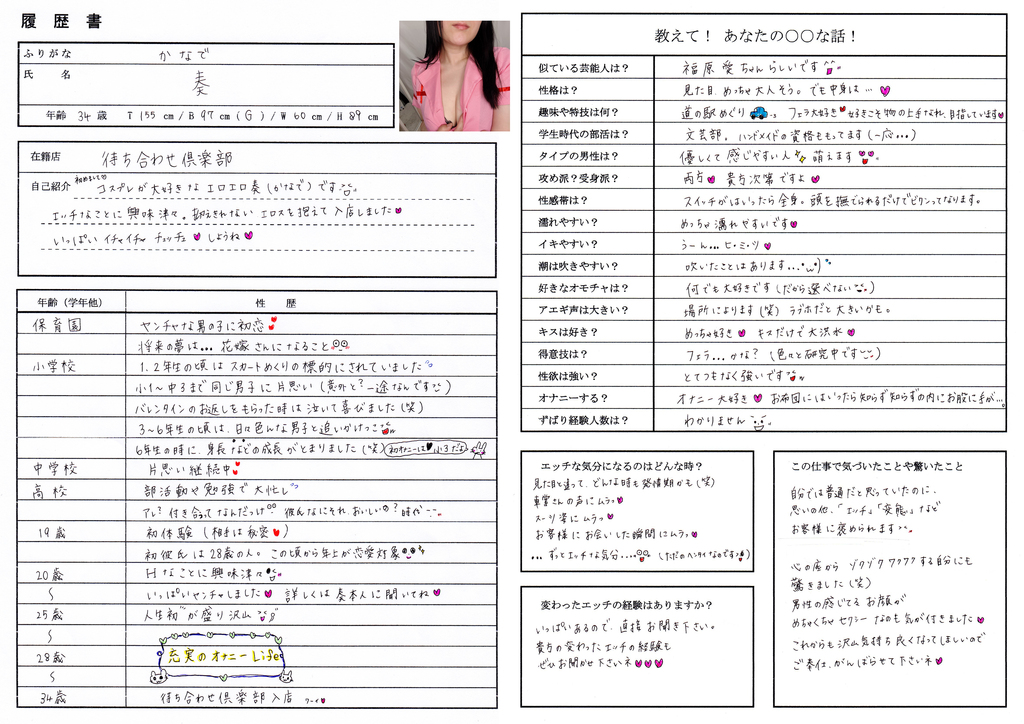 履歴書
ふりがな かなで
氏名 奏
年齢 34 歳 T 155 cm / B 97 cm ( G ) / W 60 cm / H 89 cm
在籍店 待ち合わせ倶楽部
自己紹介 初めまして♡
コスプレが大好きな エロエロ奏(かなで)です
エッチなことに興味津々。抑えきれない エロスを抱えて入店しました
いっぱい イチャイチャ チュッチュ しようね
年齢(学年他) 性歴
保育園 ヤンチャな男の子に初恋
将来の夢は… 花嫁さんになること
小学校
小1〜中3まで同じ男子に片思い(意外と?一途なんです)
バレンタインのお返しをもらった時は泣いて喜びました(笑)
3〜6年生の頃は、日々色んな男子と追いかけっこ
6年生の時に、身長などの成長がとまりました(笑)
中学校 片思い継続中
高校 部活動や勉強で大忙し
アレ?付き合うってなんだっけ? 彼氏なにそれ、おいしいの?時代
19歳 初体験(相手は秘密)
初彼氏は28歳の人。この頃から年上が恋愛対象
20歳 Hなことに興味津々
〜 いっぱいヤンチャしました 詳しくは奏本人に聞いてね
25歳 人生初が盛り沢山
〜
28歳 充実のオナニーLife
〜
34歳 待ち合わせ倶楽部入店
教えて! あなたの〇〇な話!
似ている芸能人は? 福原愛ちゃんらしいです
性格は? 見た目、めっちゃ大人そう。でも中身は…
趣味や特技は何? 道の駅めぐり フェラ大好き 好きこそ物の上手なれ、目指しています
学生時代の部活は? 文芸部。ハンドメイドの資格ももってます(一応…)
タイプの男性は? 優しくて感じやすい人 萌えます
攻め派?受身派? 両方 貴方次第ですよ
性感帯は? スイッチがはいったら全身。頭を撫でられるだけでビクンってなります。
濡れやすい? めっちゃ濡れやすいです
イキやすい? うーん…ヒ・ミ・ツ
潮は吹きやすい? 吹いたことはあります…
好きなオモチャは? 何でも大好きです(だから選べない)
アエギ声は大きい? 場所によります(笑) ラブホだと大きいかも。
キスは好き? めっちゃ好き キスだけで大洪水
得意技は? フェラ…かな?(色々と研究中です)
性欲は強い? とてつもなく強いです
オナニーする? オナニー大好き お布団にはいったら知らず知らずの内にお股に手が…。
ずばり経験人数は? わかりません
エッチな気分になるのはどんな時?
見た目と違って、どんな時も発情期かも(笑)
車掌さんの声にムラっ
スーツ姿にムラっ
お客様にお会いした瞬間にムラっ
…ずっとエッチな気分…(ただのヘンタイなのです)
変わったエッチの経験はありますか?
いっぱいあるので、直接お聞き下さい。
貴方の変わったエッチの経験も
ぜひお聞かせ下さいネ
この仕事で気づいたことや驚いたこと
自分では普通だと思っていたのに、
思いの他、「エッチ」「変態」など
お客様に褒められます
心の底から ゾクゾクワクワクする自分にも
驚きました(笑)
男性の感じてるお顔が
めちゃくちゃセクシーなのも気が付きました
これからも沢山気持ち良くなってほしいので
ご奉仕、がんばらせて下さいネ